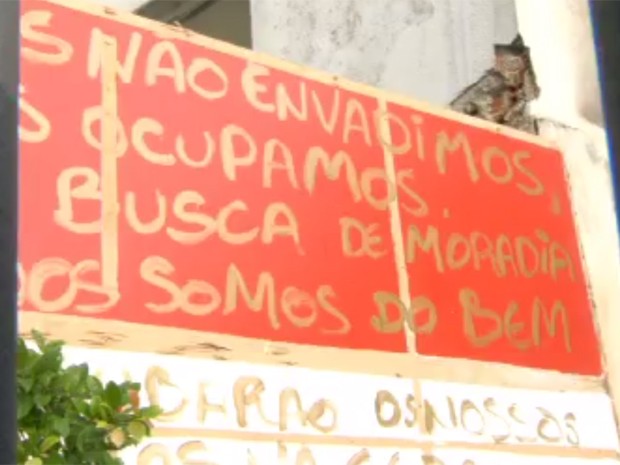 S NÃO ENVADIMOS,
S OCUPAMOS.
BUSCA DE MORADIA
NOS SOMOS DO BEM
OS NOSSOS